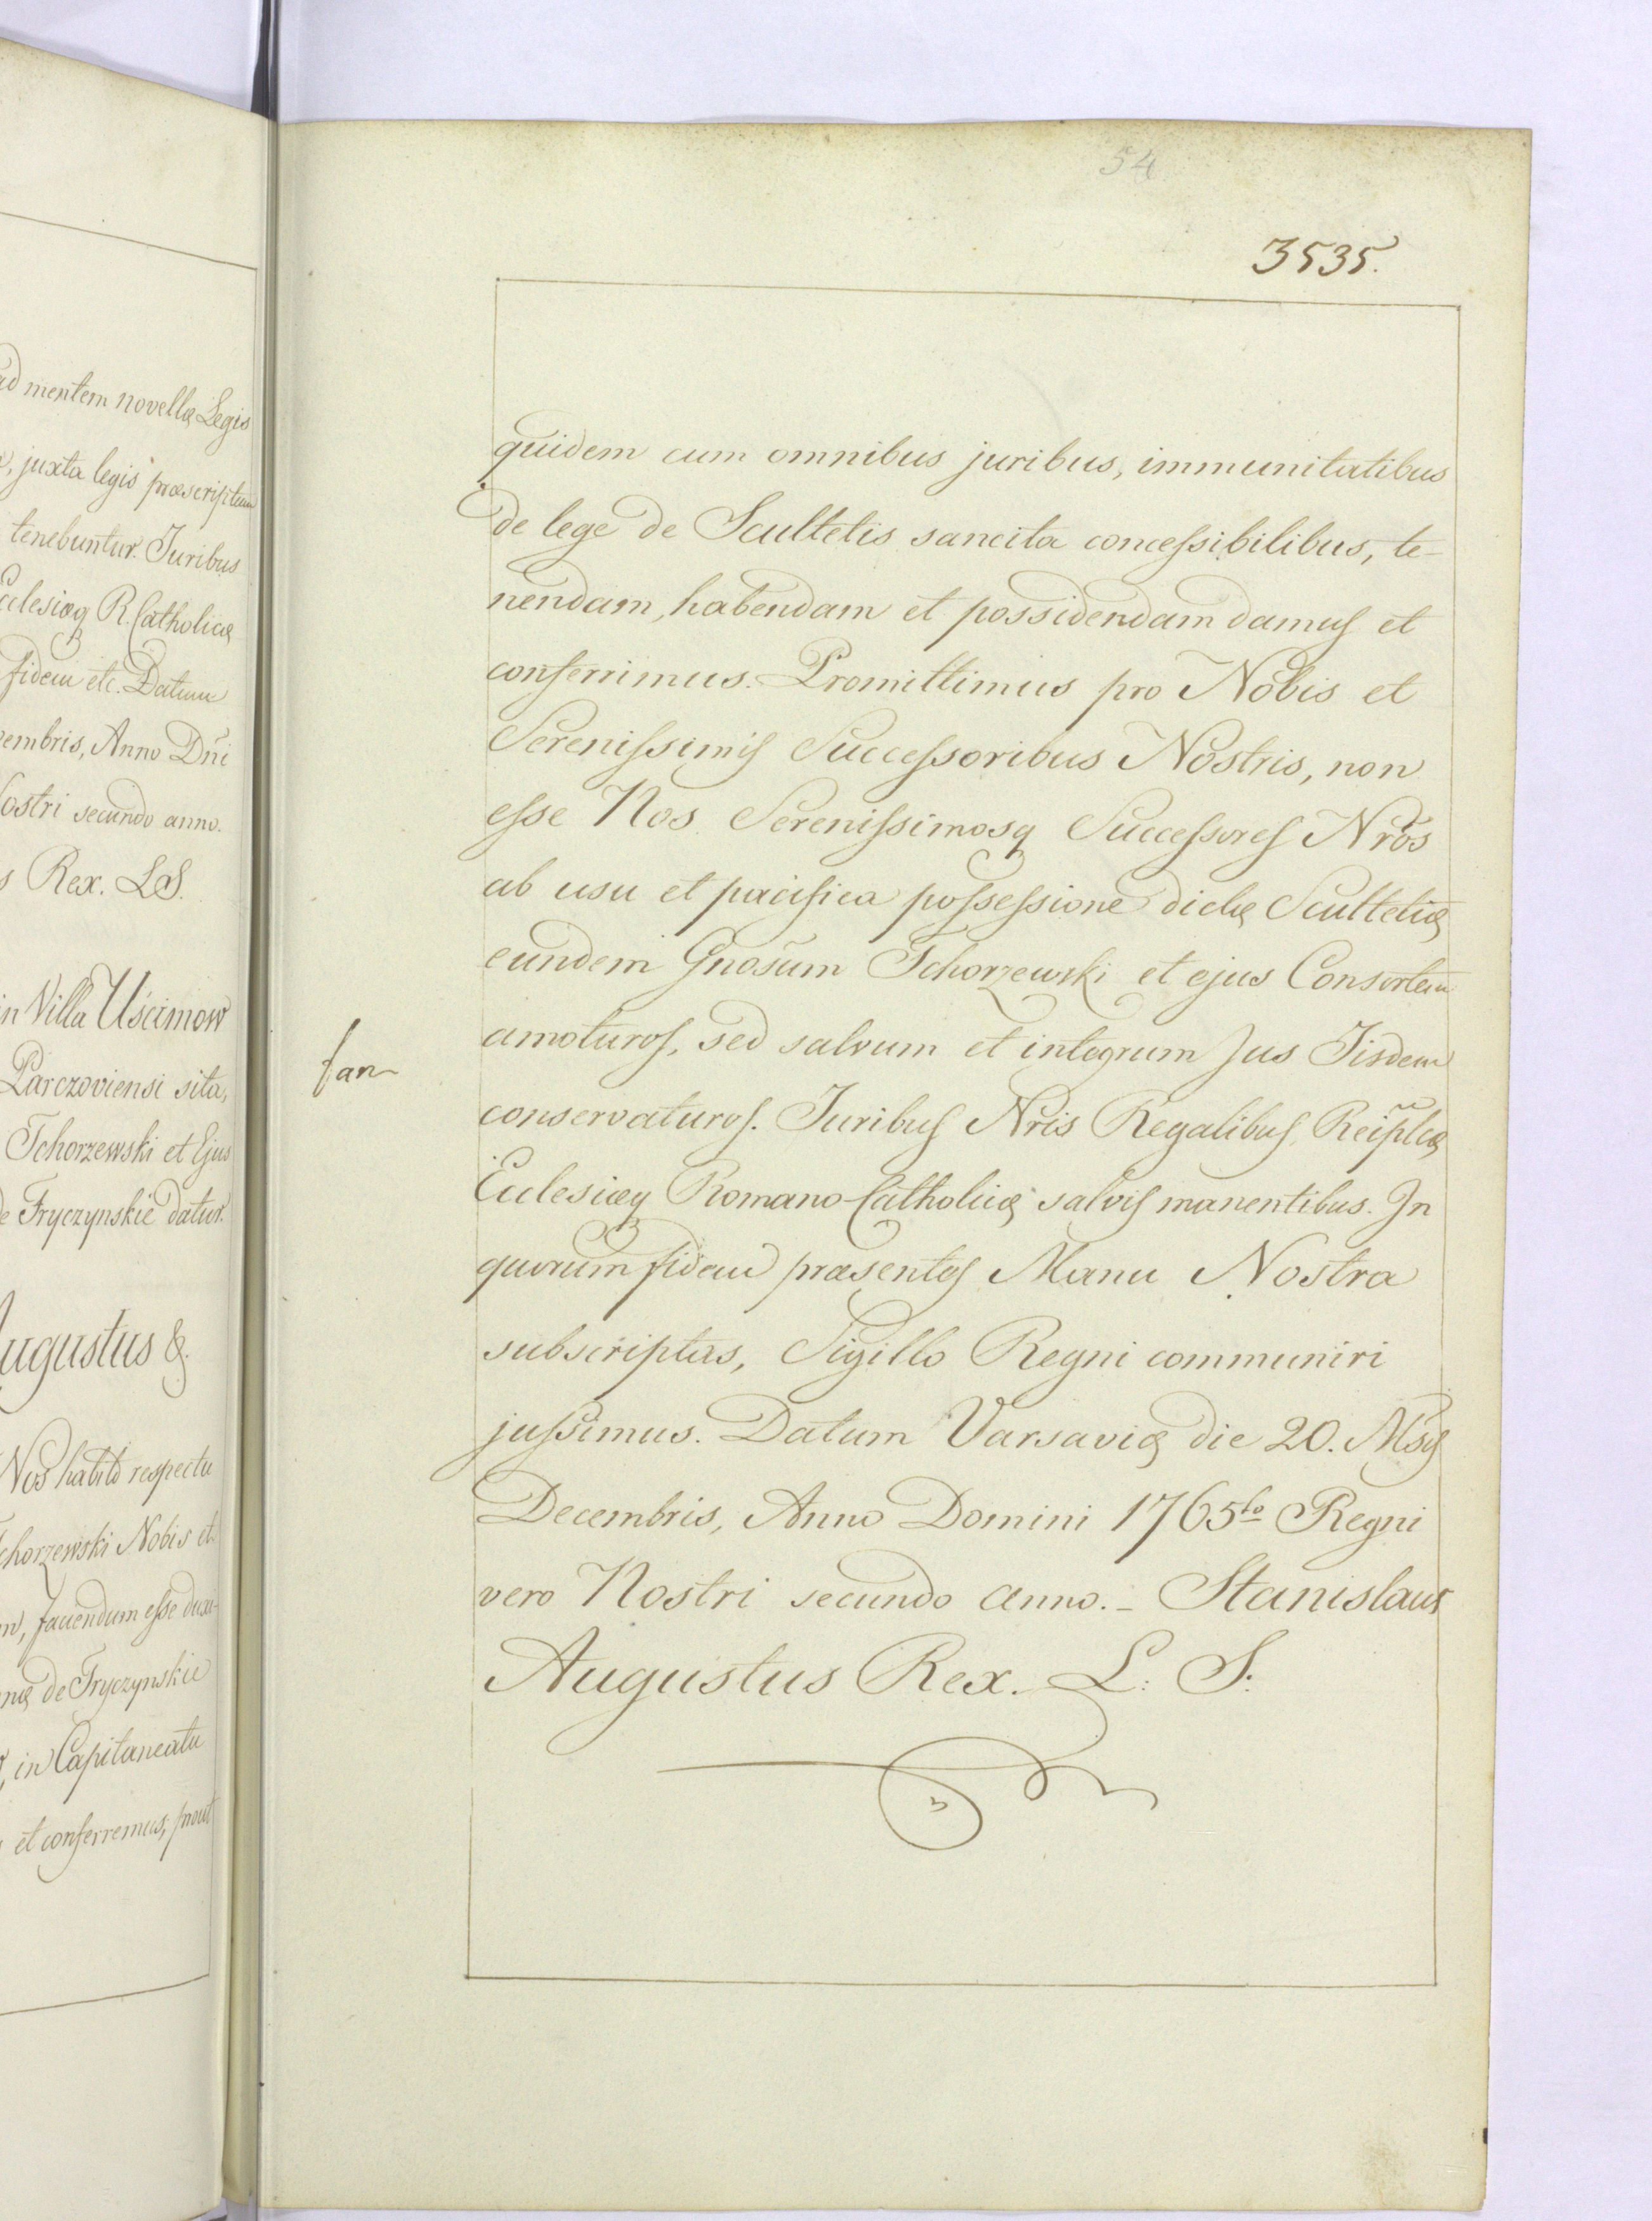 ad mentem novellæ Legis
juxta legis præscriptum
tenebuntur. Juribus
R. Catholicæ
fidem etc. Datum
embris, Anno Dñi
ostri secundo anno.
s Rex. LS.
in Villa Uścimow
Parczoviensi sita,
Tchorzewski et Ejus
de Tryczynskie datur.
ugustus &.
Nos habito respectu
chorzewski Nobis et
fauendum eſse duxi-
de Tryczynskie
in Capitaneatu
et conferremus, prout
54
3535.
quidem cum omnibus juribus, immunitatibus
de lege de Scultetis sancita conceſsibilibus, te-
nendam, habendam et possidendam damus et
conferrimus. Promittimus pro Nobis et
Sereniſsimis Succeſsoribus Nostris, non
eſse Nos Sereniſsimosq Succeſsores Nrõs
ab usu et pacifica poſseſsione dictæ Scultetiæ
eundem Gnosũm Tchorzewski et ejus Consortem
amoturos, sed salvum et integrum Jus Jisdem
conservaturos. Juribus Nris Regalibus, Reiplcæ
Ecclesiæq Romano-Catholicæ salvis manentibus. In
quorum fidem præsentes Manu Nostra
subscriptas, Sigillo Regni communiri
juſsimus. Datum Varsaviæ die 20. Msis
Decembris, Anno Domini 1765to Regni
vero Nostri secundo anno. - Stanislaus
Augustus Rex. L: S: